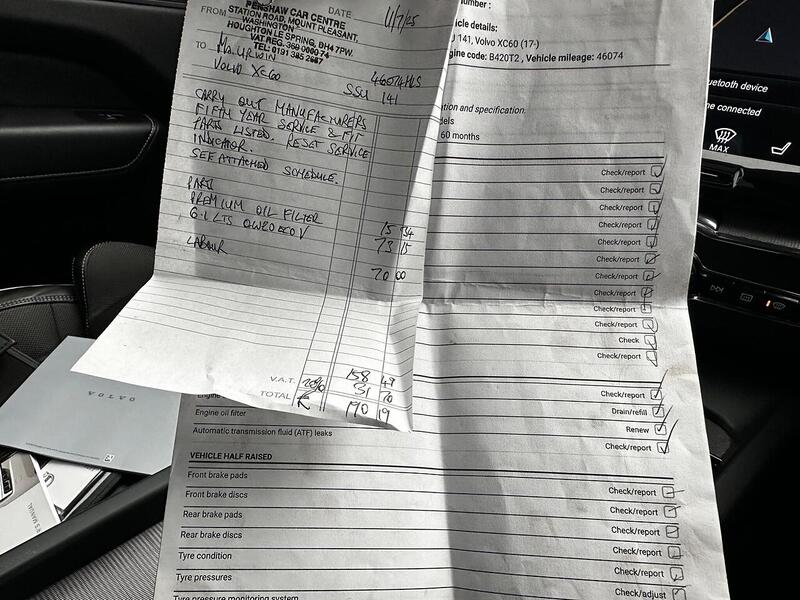 PENSHAW CAR CENTRE
STATION ROAD, MOUNT PLEASANT,
WASHINGTON
HOUGHTON LE SPRING, DH4 7PW.
VAT REG. 369 0000 74
TEL: 0191 385 2687
FROM
DATE 11/7/25
TO
VOLVO XC60
46074 MLS
141
CARRY OUT MANUFACTURERS
FIFTH YEAR SERVICE & FIT
PARTS LISTED. RESET SERVICE
INDICATOR.
SEE ATTACHED SCHEDULE.
PARTS
PREMIUM OIL FILTER 15 34
6.1 LTS 0W20 ECO V 73 15
LABOUR 70 00
158 49
V.A.T. 20% 31 70
TOTAL £ 190 19
number :
hicle details:
J 141, Volvo XC60 (17-)
gine code: B420T2 , Vehicle mileage: 46074
ation and specification.
dels
60 months
Check/report
Check/report
Check/report
Check/report
Check/report
Check/report
Check/report
Check/report
Check/report
Check
Check/report
Check/report
Engine
Drain/refill
Engine oil filter
Renew
Automatic transmission fluid (ATF) leaks
Check/report
VEHICLE HALF RAISED
Front brake pads
Check/report
Front brake discs
Check/report
Rear brake pads
Check/report
Rear brake discs
Check/report
Tyre condition
Check/report
Tyre pressures
Check/adjust
Tyre pressure monitoring system
uetooth device
ne connected
MAX
VOLVO
R'S MANUAL